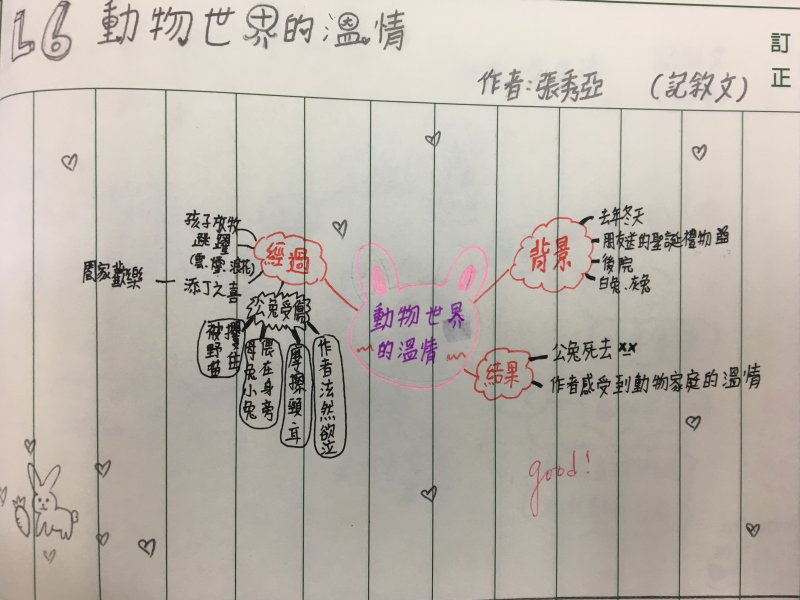 L6 動物世界的溫情
訂正
作者：張秀亞 （記敘文）
動物世界
的溫情
背景
去年冬天
朋友送的聖誕禮物
後院
白兔、灰兔
經過
孩子放牧
跳躍
(雲、煙、浪花)
添丁之喜
闔家歡樂
公兔受傷
被野貓
攫住
母兔小兔
偎在身旁
摩擦頸耳
作者泫然欲泣
結果
公兔死去
作者感受到動物家庭的溫情
good!